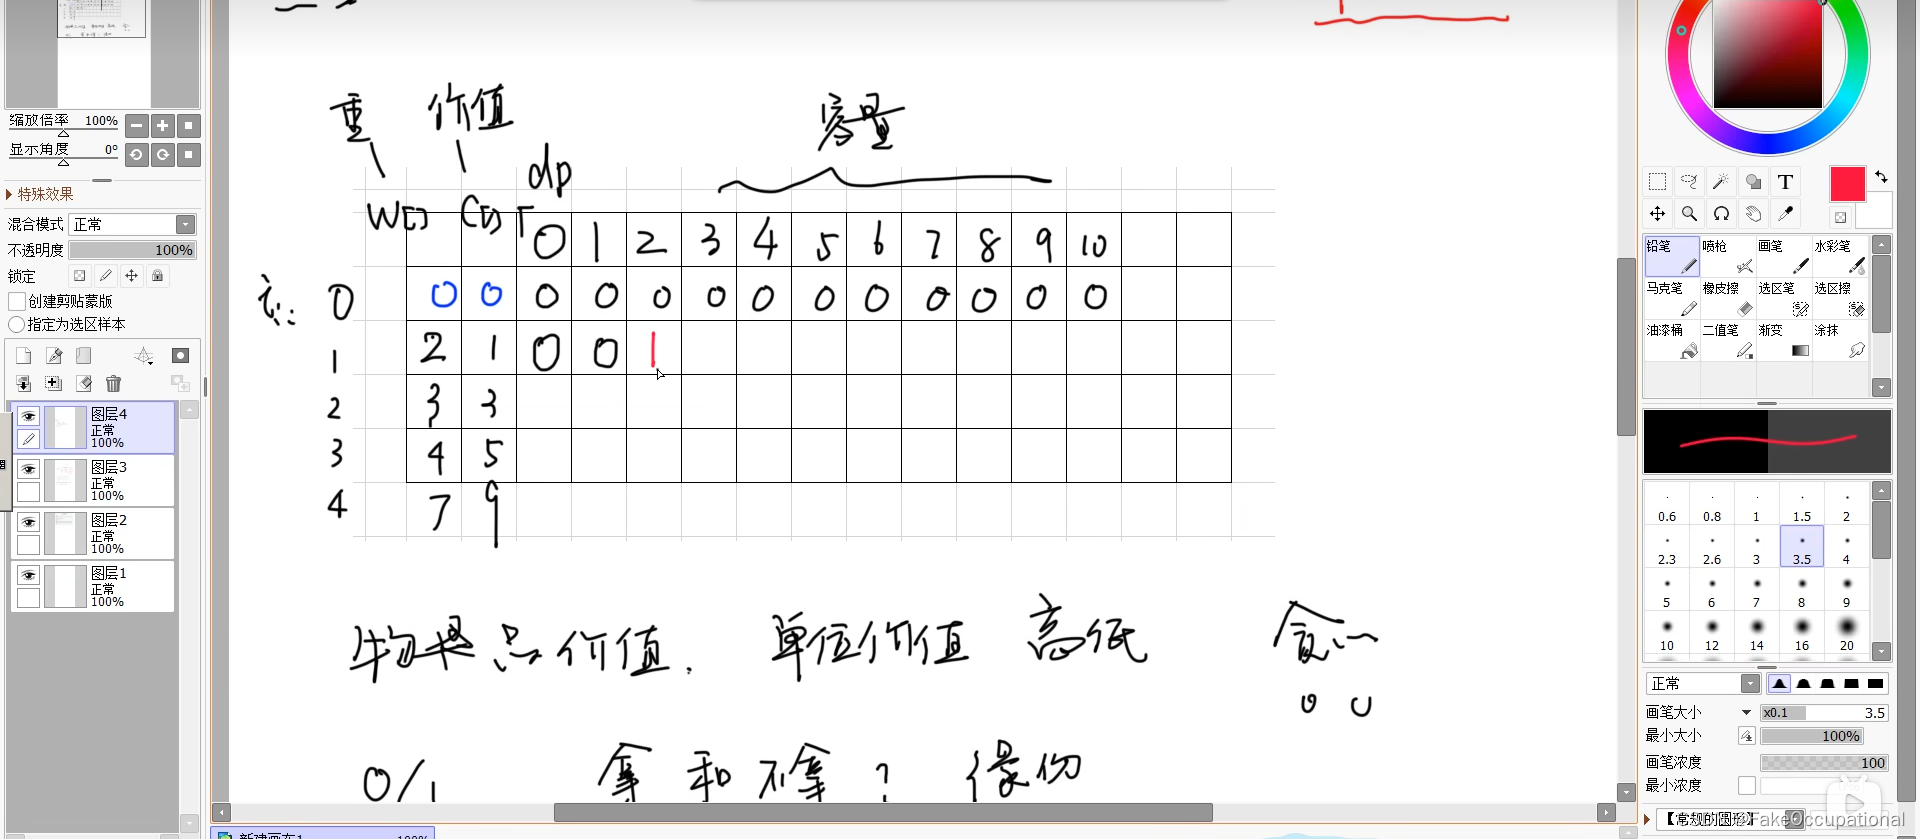 缩放倍率 100%
显示角度 0°
特殊效果
混合模式 正常
不透明度 100%
锁定
创建剪贴蒙版
指定为选区样本
图层4
正常
100%
图层3
正常
100%
图层2
正常
100%
图层1
正常
100%
重 价值 容量
dp
W[] C[]
0 1 2 3 4 5 6 7 8 9 10
i: 0 0 0 0 0 0 0 0 0 0 0 0 0 0
1 2 1 0 0 1
2 3 3
3 4 5
4 7 9
物品价值. 单位价值 高低 贪心
0/1 拿和不拿?
新建画布1 100%
T
铅笔 喷枪 画笔 水彩笔
马克笔 橡皮擦 选区笔 选区擦
油漆桶 二值笔 渐变 涂抹
0.6 0.8 1 1.5 2
2.3 2.6 3 3.5 4
5 6 7 8 9
10 12 14 16 20
正常
画笔大小 x0.1 3.5
最小大小 100%
画笔浓度 100
最小浓度
【常规的圆形】
@FakeOccupational